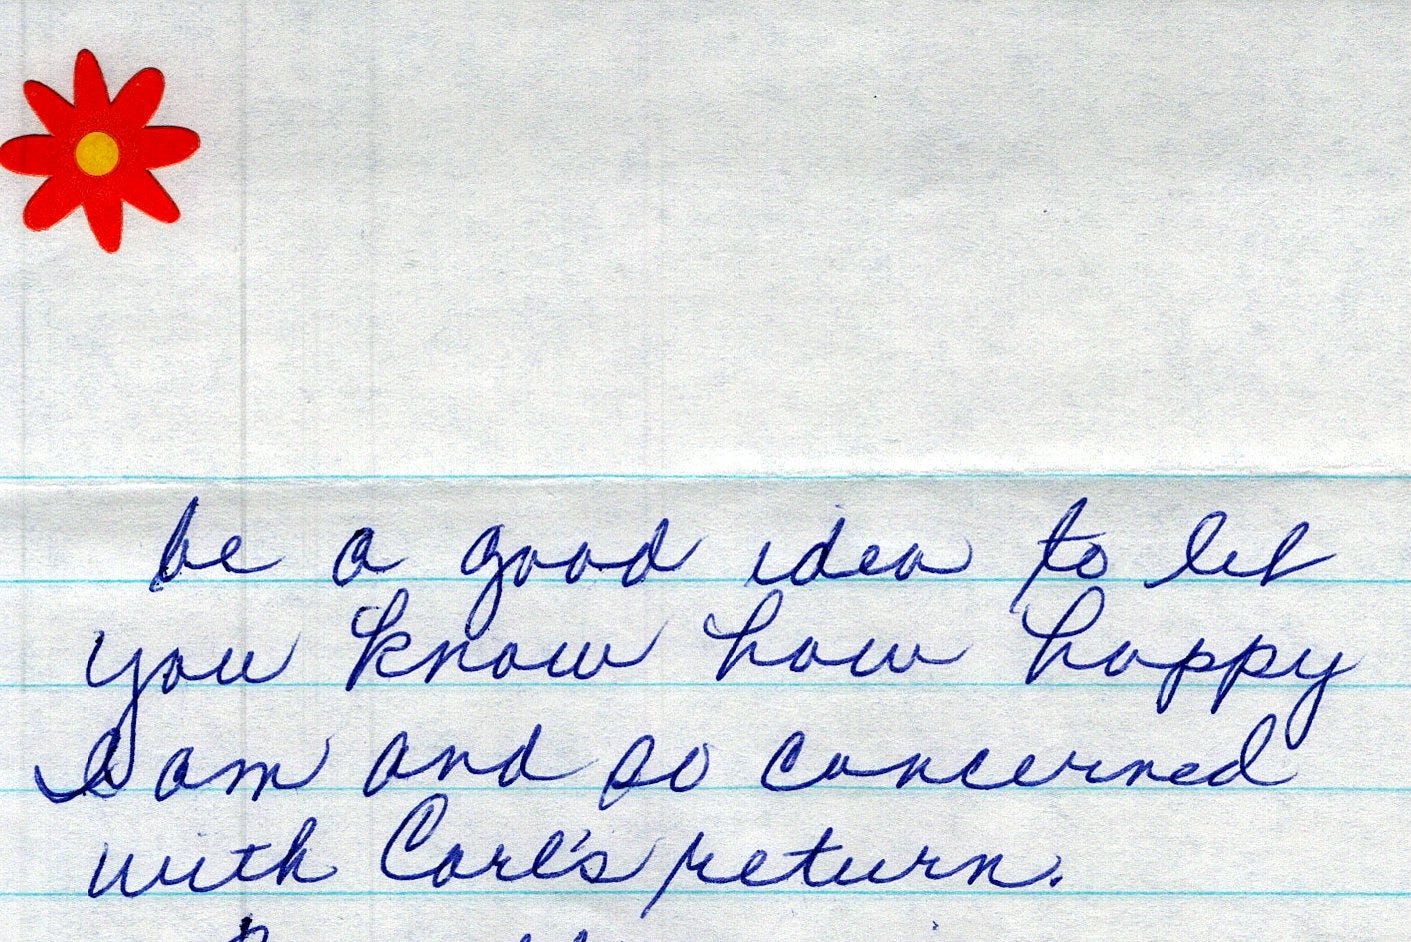 be a good idea to let
you know how happy
I am and so concerned
with Carl's return.